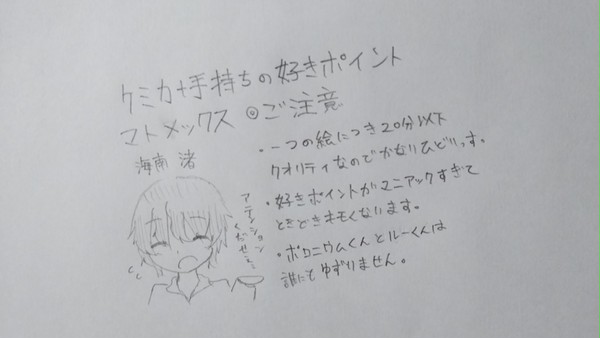 ケミカ+手持ちの好きポイント
マトメックス ◎ご注意
海南 渚
・一つの絵につき20分以下
クオリティなのでかなりひどいっす。
・好きポイントがマニアックすぎて
ときどきキモくなります。
・ポロニウムくんとルーくんは
誰にもゆずりません。
アテンション
くださせ…